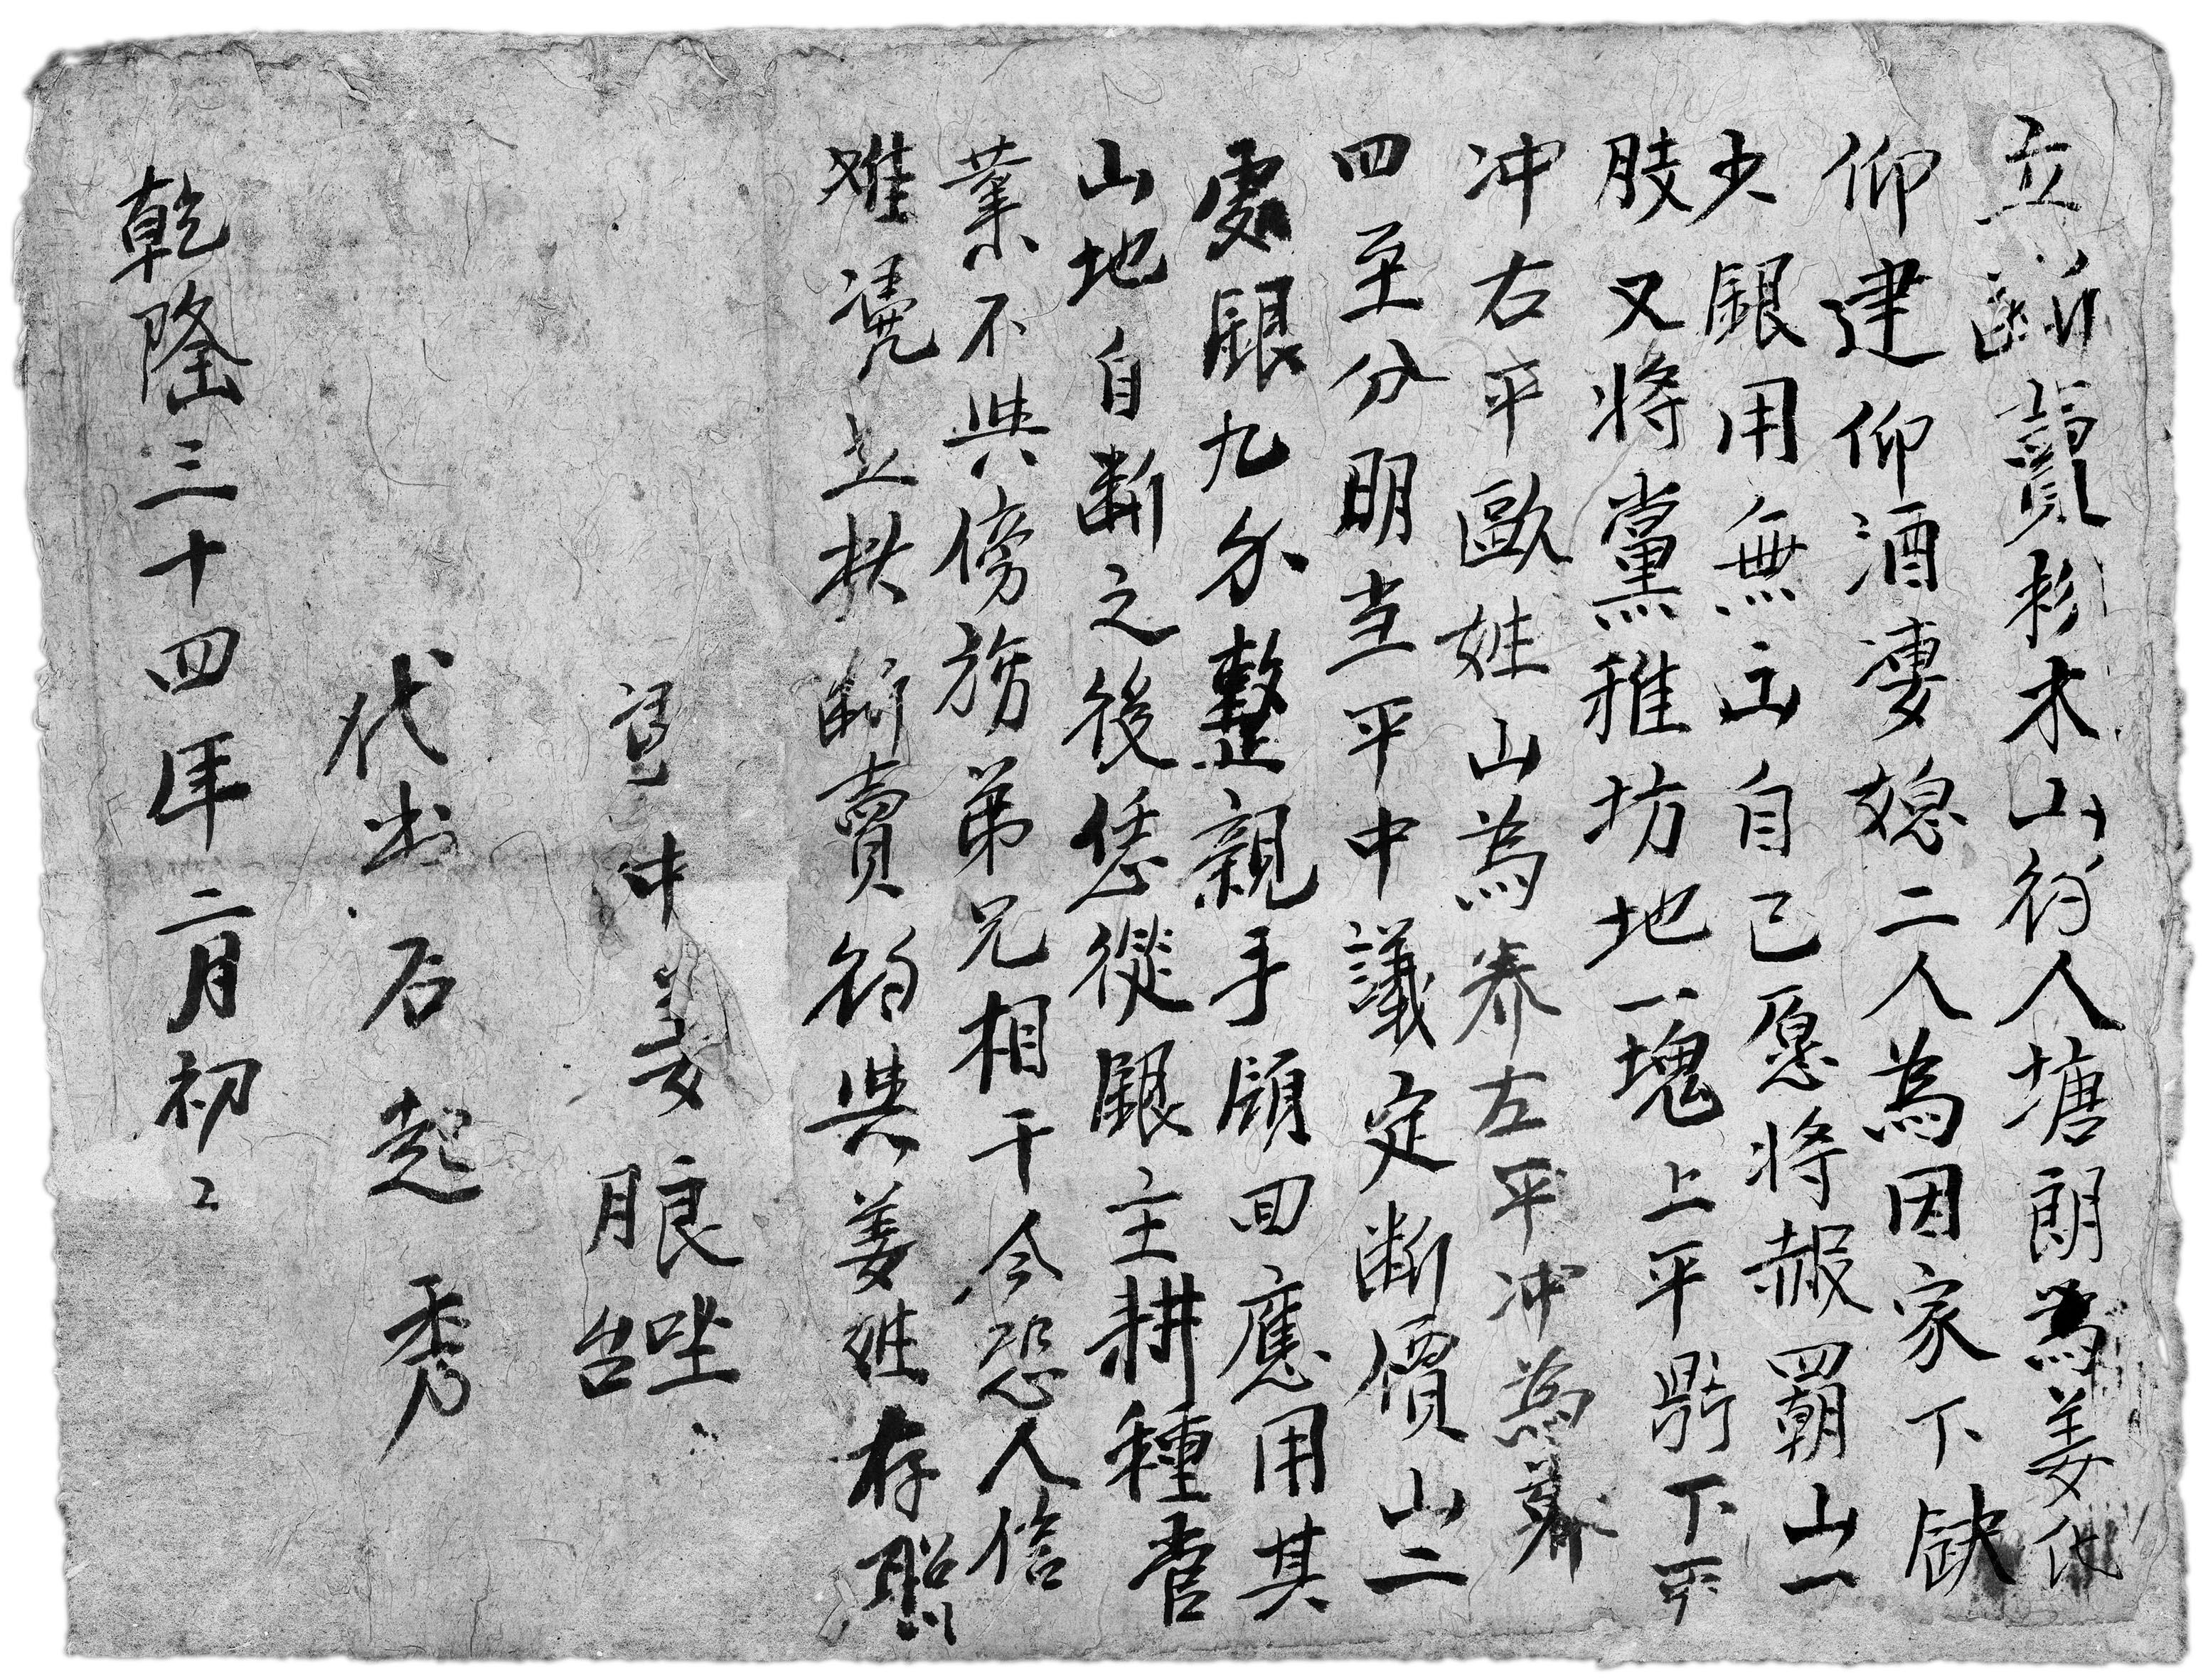 立断賣杉木山約人塘朗為姜化
仰建仰酒凄媳二人為因家下缺
少銀用無立自己愿将赧罷山一
肢又将黨稚坊地一塊上平野下平
冲右平歐姓山為界左平冲為界
四至分明当平中議定断價山二
處銀九分整親手領回應用其
山地自断之後恁從銀主耕種菅
業不與傍族弟兄相干今恐人信
难凴立枨断賣約與姜姓存照
凴中姜
良唑
月台
代书石起秀
乾隆三十四年二月初二